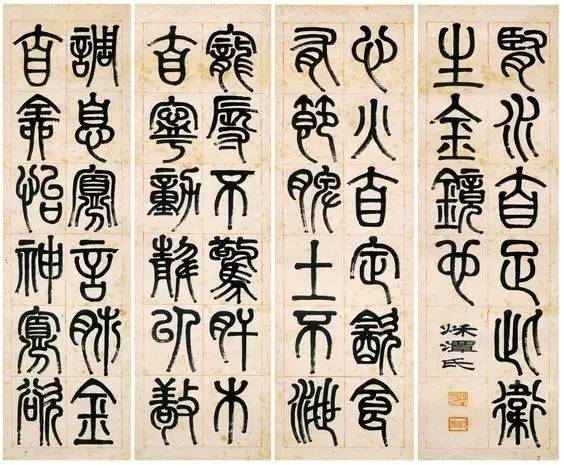 寵辱不驚肝木
自寧動靜以敬
心火自定飲食
有節脾土不泄
調息寡言肺金
自全怡神寡欲
腎水自足此衛
生金鏡也
潭氏